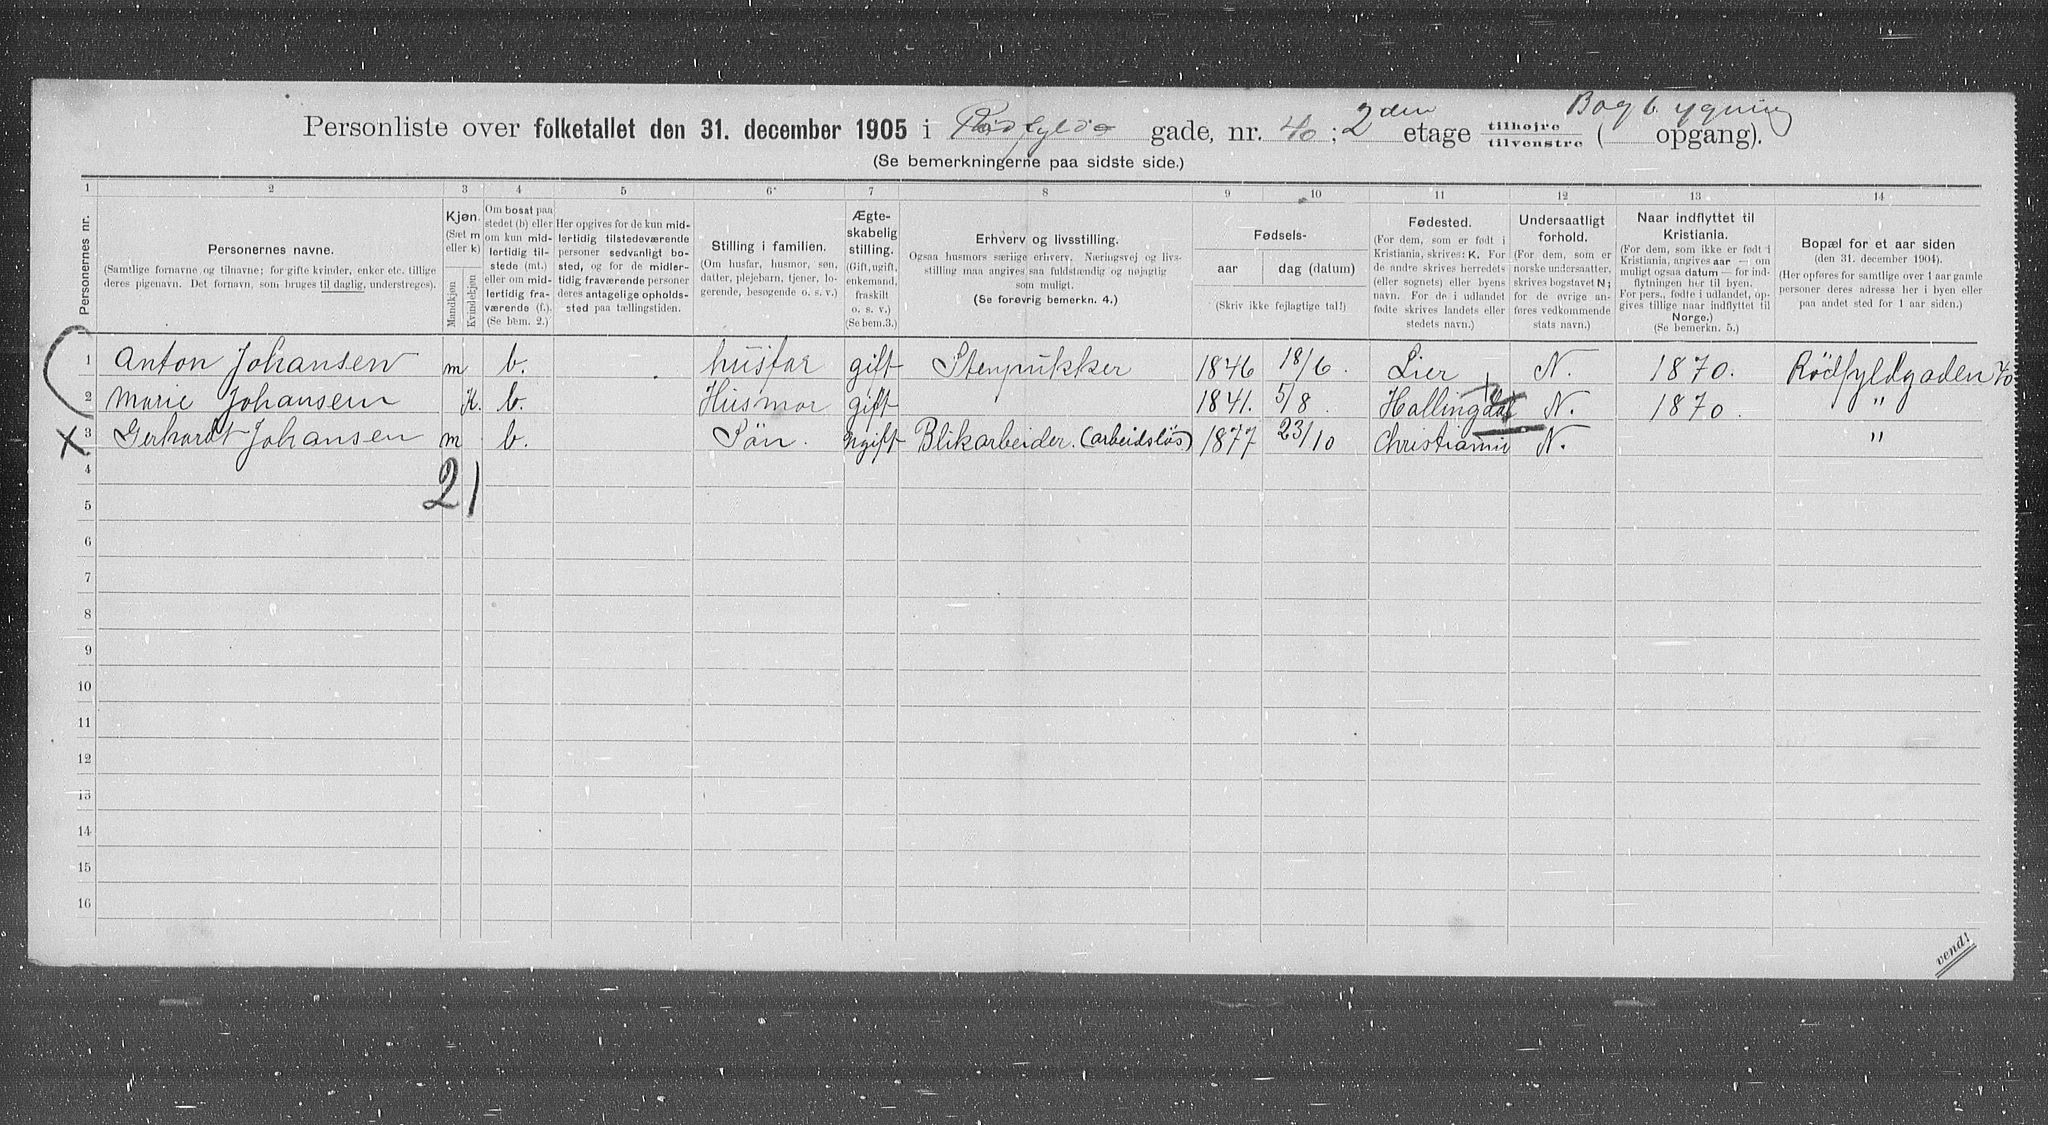 Personliste over folketallet den 31. december 1905 i Rødfylds gade, nr. 40; 2den etage tilhøjre/tilvenstre (Bagbygning opgang).
(Se bemerkningerne paa sidste side.)
1 2 3 4 5 6 7 8 9 10 11 12 13 14
Personernes nr.
Personernes navne.
(Samtlige fornavne og tilnavne; for gifte kvinder, enker etc. tillige
deres pigenavn. Det fornavn, som bruges til daglig, understreges).
Kjøn.
(Sæt m
eller k)
Mandkjøn
Kvindekjøn
Om bosat paa
stedet (b) eller
om kun mid-
lertidig til-
stede (mt.)
eller om mid-
lertidig fra-
værende (f.).
(Se bem. 2.)
Her opgives for de kun mid-
lertidig tilstedeværende
personer sedvanligt bo-
sted, og for de midler-
tidig fraværende personer
deres antagelige opholds-
sted paa tællingstiden.
Stilling i familien.
(Om husfar, husmor, søn,
datter, plejebarn, tjener, lo-
gerende, besøgende o. s. v.)
Ægte-
skabelig
stilling.
(Gift, ugift,
enkemand,
fraskilt
o. s. v.)
(Se bem.3.)
Erhverv og livsstilling.
Ogsaa husmors særlige erhverv. Næringsvej og livs-
stilling maa angives saa fuldstændig og nøjagtig
som muligt.
(Se forøvrig bemerkn. 4.)
Fødsels-
aar
dag (datum)
(Skriv ikke fejlagtige tal!)
Fødested.
(For dem, som er født i
Kristiania, skrives: K. For
de andre skrives herredets
(eller sognets) eller byens
navn. For de i udlandet
fødte skrives landets eller
stedets navn.)
Undersaatligt
forhold.
(For dem, som er
norske undersaatter,
skrives bogstavet N;
for de øvrige an-
føres vedkommende
stats navn.)
Naar indflyttet til
Kristiania.
(For dem, som ikke er født i
Kristiania, angives aar — om
muligt ogsaa datum — for ind-
flytningen her til byen.
For pers., fødte i udlandet, op-
gives tillige naar indflyttet til
Norge.)
(Se bemerkn. 5.)
Bopæl for et aar siden
(den 31. december 1904).
(Her opføres for samtlige over 1 aar gamle
personer deres adresse her i byen eller
paa andet sted for 1 aar siden.)
1 Anton Johansen m b. husfar gift Stenpukker 1846 18/6. Lier N. 1870. Rödfyldgaden 40
2 Marie Johansen K. b. Husmor gift 1841. 5/8. Hallingdal N. 1870. "
3 Gerhardt Johansen m b. Sön. ugift Blikarbeider. (arbeidsløs) 1877 23/10 Christiania N. "
4
21
5
6
7
8
9
10
11
12
13
14
15
16
vend!